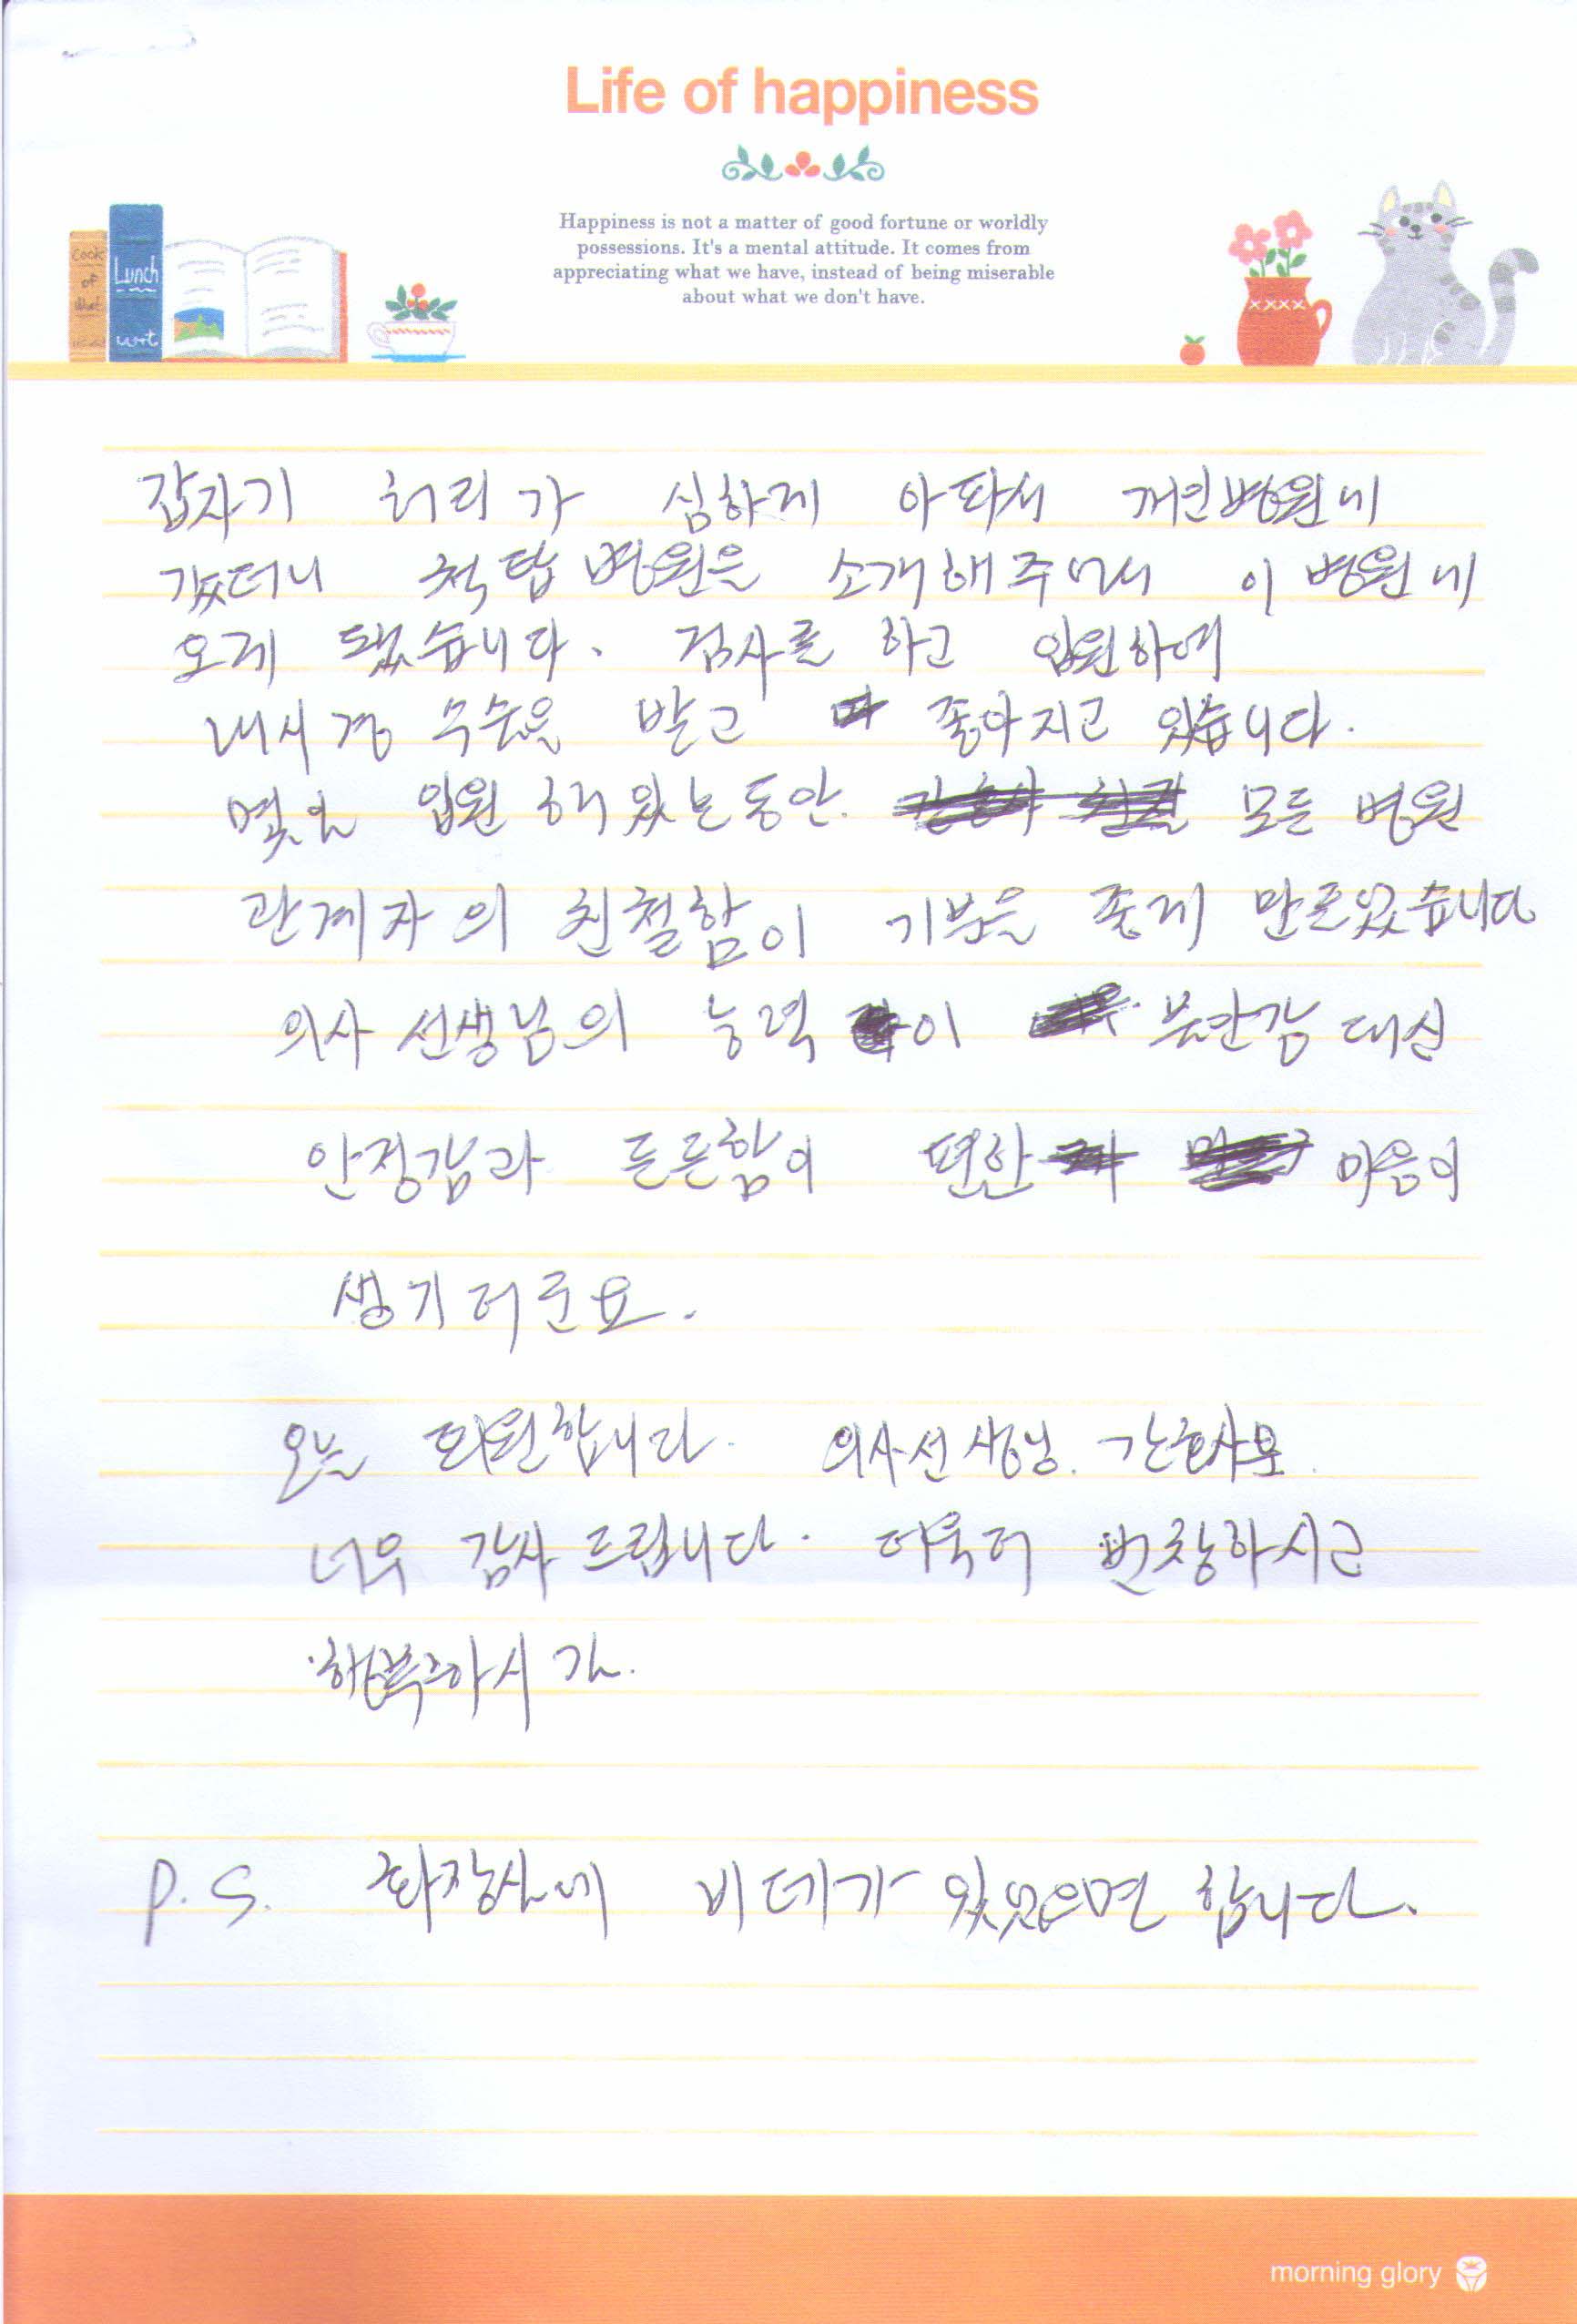 Life of happiness
Happiness is not a matter of good fortune or worldly
possessions. It's a mental attitude. It comes from
appreciating what we have, instead of being miserable
about what we don't have.
Cook
of
Lunch
갑자기 허리가 심하게 아파서 개인병원에
갔더니 척탑병원을 소개해주면서 이 병원에
오게 됐습니다. 검사를 하고 입원하여
내시경 수술을 받고 좋아지고 있습니다.
몇일 입원 해 있는동안. 모든 병원
관계자의 친철함이 기분을 좋게 만들었습니다
의사 선생님의 능력이 불안감 대신
안정감과 든든함이 편안 마음이
생기더군요.
오늘 퇴원합니다. 의사선생님. 간호사분.
너무 감사드립니다. 더욱더 번창하시고
행복하시길.
P.S. 화장실에 비데가 있었으면 합니다.
morning glory